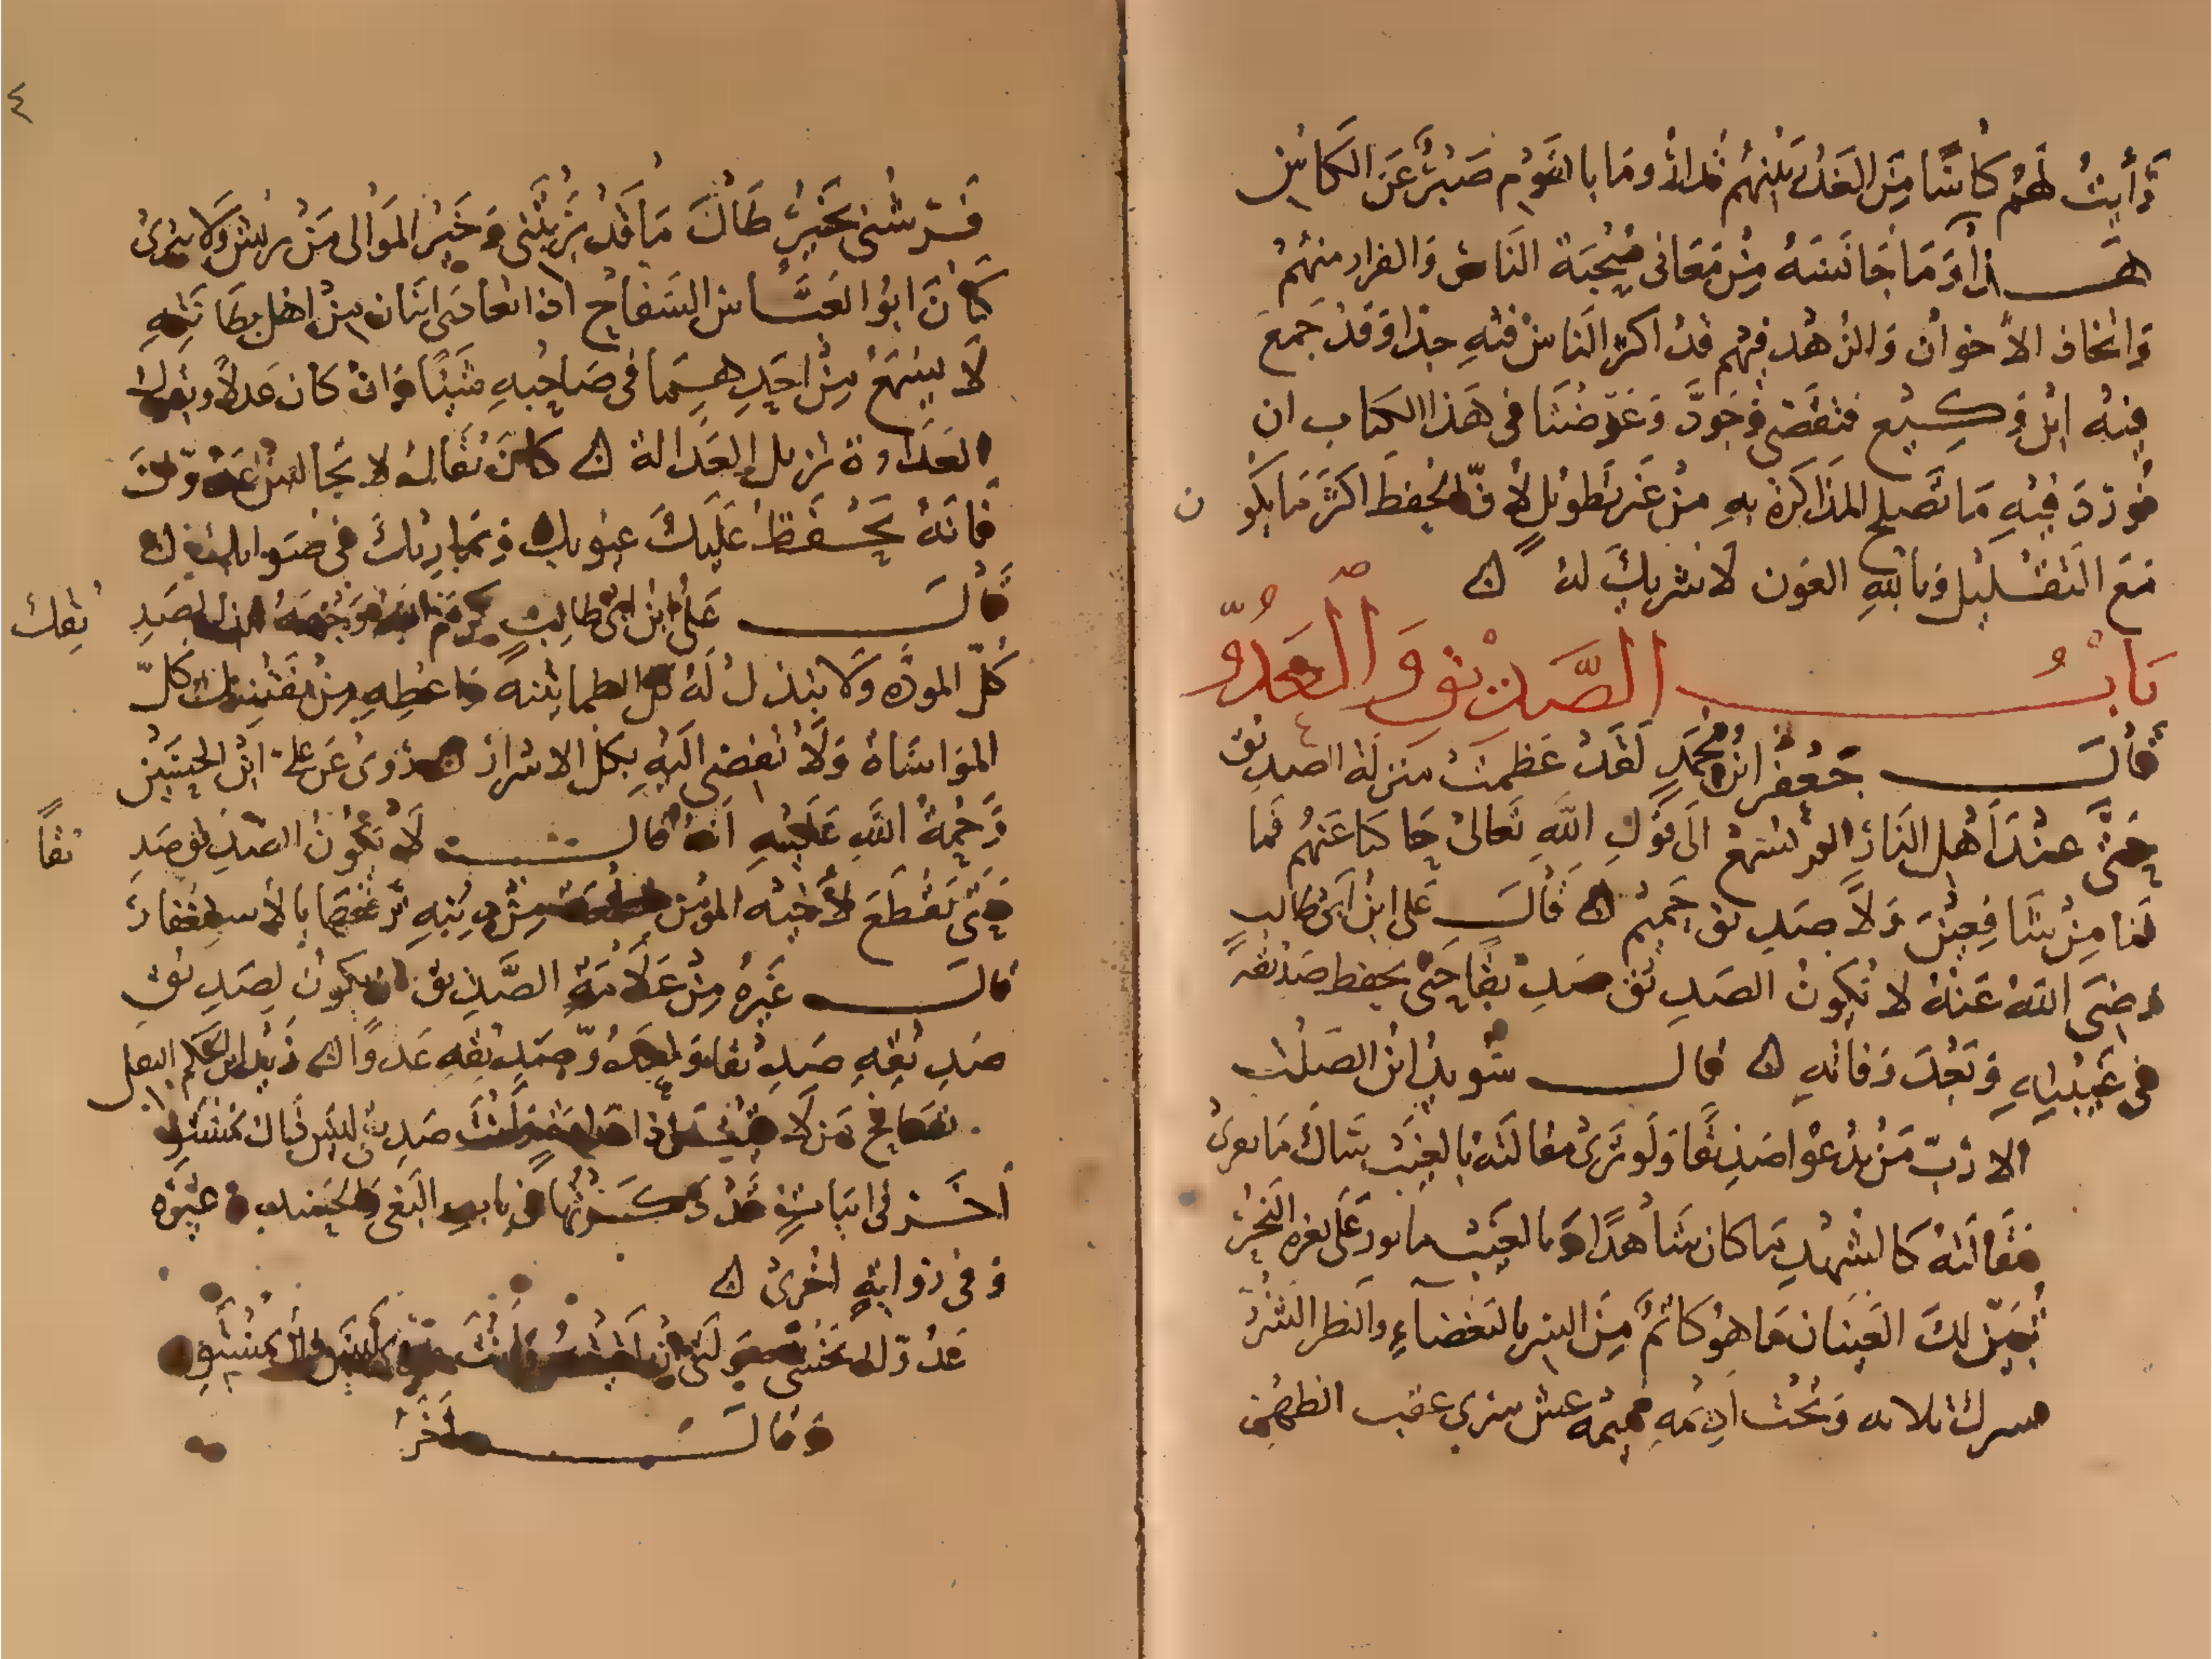 رأيتُ لهُم كأسًا مِنَ الغَدْرِ بَيْنهُم تُدارُ وما بالقَوْم صَبرٌ عَن الكَاسِ
هَذا وَمَا جَانَسَهُ مِنْ مَعَاني صُحْبَة النَاس وَالفرار منهُم
وَاتخاذ الأخوان وَالزهْد فيهم قدْ اكثر النَاسْ فيهِ جدًا وَقدْ جَمعَ
فيهُ ابْن وَكيع فتقَصَّى وَجَودَّ وَغَرَضُنَا في هَذا الكتَاب ان
نُورَدَ فيْهِ مَا تَصلح المذَاكرَة بهِ مِنْ غَير تَطويْل لأنّ الحفظ اكثَرَ مَا يكُو ن
مَعَ التَقْليْل وَبا للهِ العَون لاَ شريكَ لهُ
بَابُ الصَّدِيْق وَالعَدُوّ
قَالَ جَعْفر ابنُ مُحَمَدٍ لَقَدْ عَظمتْ منزلَة الصديق
حَتىَّ عنْدَ اَهْل النَارِ الم تسْمَعْ الَى قَوْلِ اللهِ تَعالىْ حَاكيَا عَنهُم فَما
لنا مِنْ شَافِعِيْنَ وَلاَ صدِيق حَمِيْم قَالَ عَلي ابْن ابَيْ طالب
رضيَ اللهُ عَنْهُ لا يَكونُ الصَدِيق صَدِيْقًا حَتى يحفظ صَدْيقَهُ
في غَيْبتِهِ وَبَعْدَ وَفاتهِ قال سُويدُ ابْن الصَلْت
الا رُبّ مَنْ يدْعُو اصَدِيْقًا وَلَو تَرَىْ مقالتَهُ بالغيْب سَاكَ مَا يفريْ
مَقَالَتهُ كَالشهْدِ مَا كان شَاهدًا وَبالغيْب مأثور عَلى ثغرة النَحْر
تُبَيّن لكَ العَيْنَان مَا هوُ كَاتمٌ مِنَ السِر بالبَغضاءِ والنظر الشَزْر
وَتحْتَ ادِيْمهِ نميمَة غش تبري عقب الظهْر
فَرشني بخَيْرٍ طَالَ مَا قَدْ بَرْيتَني وَخَيْر المَوَالي مَنْ يَريش وَلا يَبْريْ
كَانَ ابُو العَبَّاس السَفاح اذ اتعادَى اثنَان مِنْ اهْل بطَانتِهِ
لَا يسْمَعْ مِنْ احَدِهِمَا في صَاحِبهِ شَيْئًا وَانْ كَان عَدلاً ويقول
العَدَاوة تزيل العَدالة كانَ يُقَالُ لا تجَالسْ عَدُوّكَ
فانَهُ يَحْفَظ عَلَيكَ عيوبك وَيماريْكَ في صَوابك
قَالَ عَلي ابْن ابيْ طالبٍ كرمَ اللهُ وَجْهَهُ ابذل لصَدِ يقِكَ
كُلّ المودة وَلاَ تبذل لَهُ كلّ الطمانيْنة وَاعطِهِ مِنْ نَفْسِكَ كلّ
المواسَاة وَلاَ تفضي اليْهِ بكل الاسرار رَوىْ عَن علي ابْن الحسَيْن
رَحْمةُ اللهِ عَليْهِ انَهُ قال لَا يَكُونُ الصَدِيق صَدِ يقًا
حَتىْ يَقْطَعَ لأخيْه المؤمن مِنْ دِيْنهِ يرقعُها بالأستغفار
قالَ غَيرُهُ مِنْ عَلاَمَةِ الصَّدِيق ان يَكُونْ لصَدِيْقِ
صَدِيْقِهِ صَدِيْقا وَلعَدُوّ صَدِيْقِهِ عَدوًا
تصَافح مَن لَا صَدِيْق ليْس ذَاك بمُسْتَو
أخَر في ابَياتٍ قَدْ ذكَرتُهَا في بابِ البَغي والحَسَد وَغَيْره
وَفي رَوايَةٍ اخْرىْ
عَدُوّك يَخْشَى صَولتيْ
وَقَالَ اخَر
٤